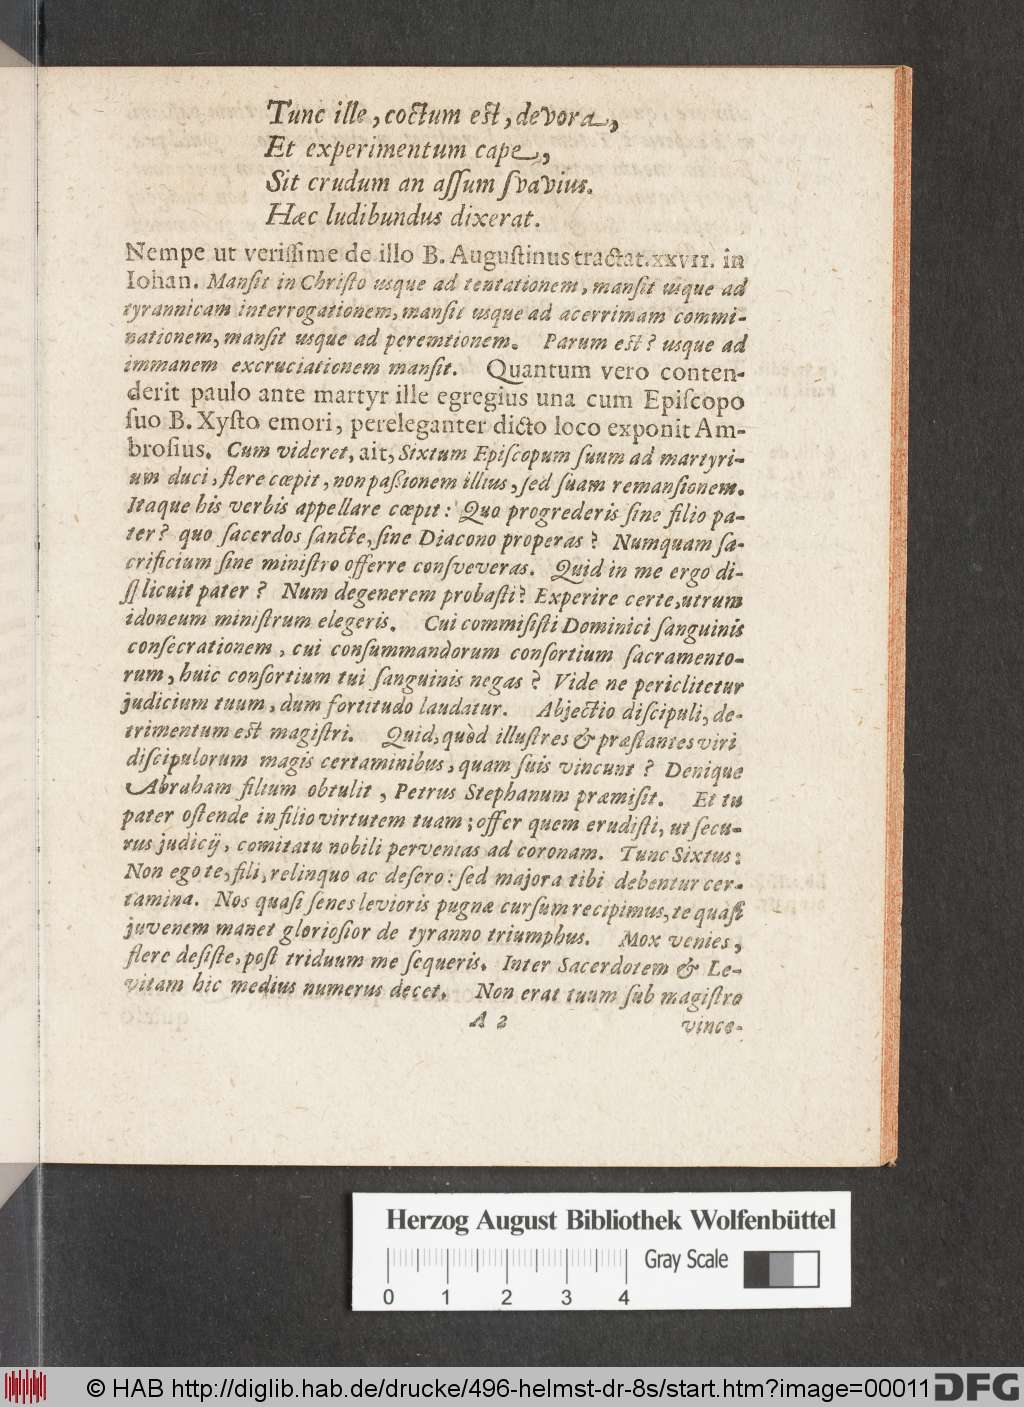 Tunc ille, coctum est, devora,
Et experimentum cape,
Sit crudum an aſſum ſvavius.
Hæc ludibundus dixerat.
Nempe ut veriſſime de illo B. Auguſtinus tractat. XXVII. in
Iohan. Manſit in Chriſto usque ad tentationem, manſit usque ad
tyrannicam interrogationem, manſit usque ad acerrimam commi-
nationem, manſit usque ad peremtionem. Parum est? usque ad
immanem excruciationem manſit. Quantum vero conten-
derit paulo ante martyr ille egregius una cum Epiſcopo
ſuo B. Xyſto emori, pereleganter dicto loco exponit Am-
broſius. Cum videret, ait, Sixtum Epiſcopum ſuum ad martyri-
um duci, flere cœpit, non paſsionem illius, ſed ſuam remanſionem.
Itaque his verbis appellare cœpit: Quo progrederis ſine filio pa-
ter? quo ſacerdos ſancte, ſine Diacono properas? Numquam ſa-
crificium ſine miniſtro offerre conſveveras. Quid in me ergo di-
ſplicuit pater? Num degenerem probaſti? Experire certe, utrum
idoneum miniſtrum elegeris. Cui commiſiſti Dominici ſanguinis
conſecrationem, cui conſummandorum conſortium ſacramento-
rum, huic conſortium tui ſanguinis negas? Vide ne periclitetur
judicium tuum, dum fortitudo laudatur. Abjectio diſcipuli, de-
trimentum est magiſtri. Quid, quòd illuſtres & præſtantes viri
diſcipulorum magis certaminibus, quam ſuis vincunt? Denique
Abraham filium obtulit, Petrus Stephanum præmiſit. Et tu
pater oſtende in filio virtutem tuam; offer quem erudiſti, ut ſecu-
rus judicij, comitatu nobili pervenias ad coronam. Tunc Sixtus:
Non ego te, fili, relinquo ac deſero: ſed majora tibi debentur cer-
tamina. Nos quaſi ſenes levioris pugnæ curſum recipimus, te quaſi
juvenem manet glorioſior de tyranno triumphus. Mox venies,
flere deſiſte, poſt triduum me ſequeris. Inter Sacerdotem & Le-
vitam hic medius numerus decet. Non erat tuum ſub magiſtro
A 2 vince-
Herzog August Bibliothek Wolfenbüttel
Gray Scale
0 1 2 3 4
© HAB http://diglib.hab.de/drucke/496-helmst-dr-8s/start.htm?image=00011
DFG